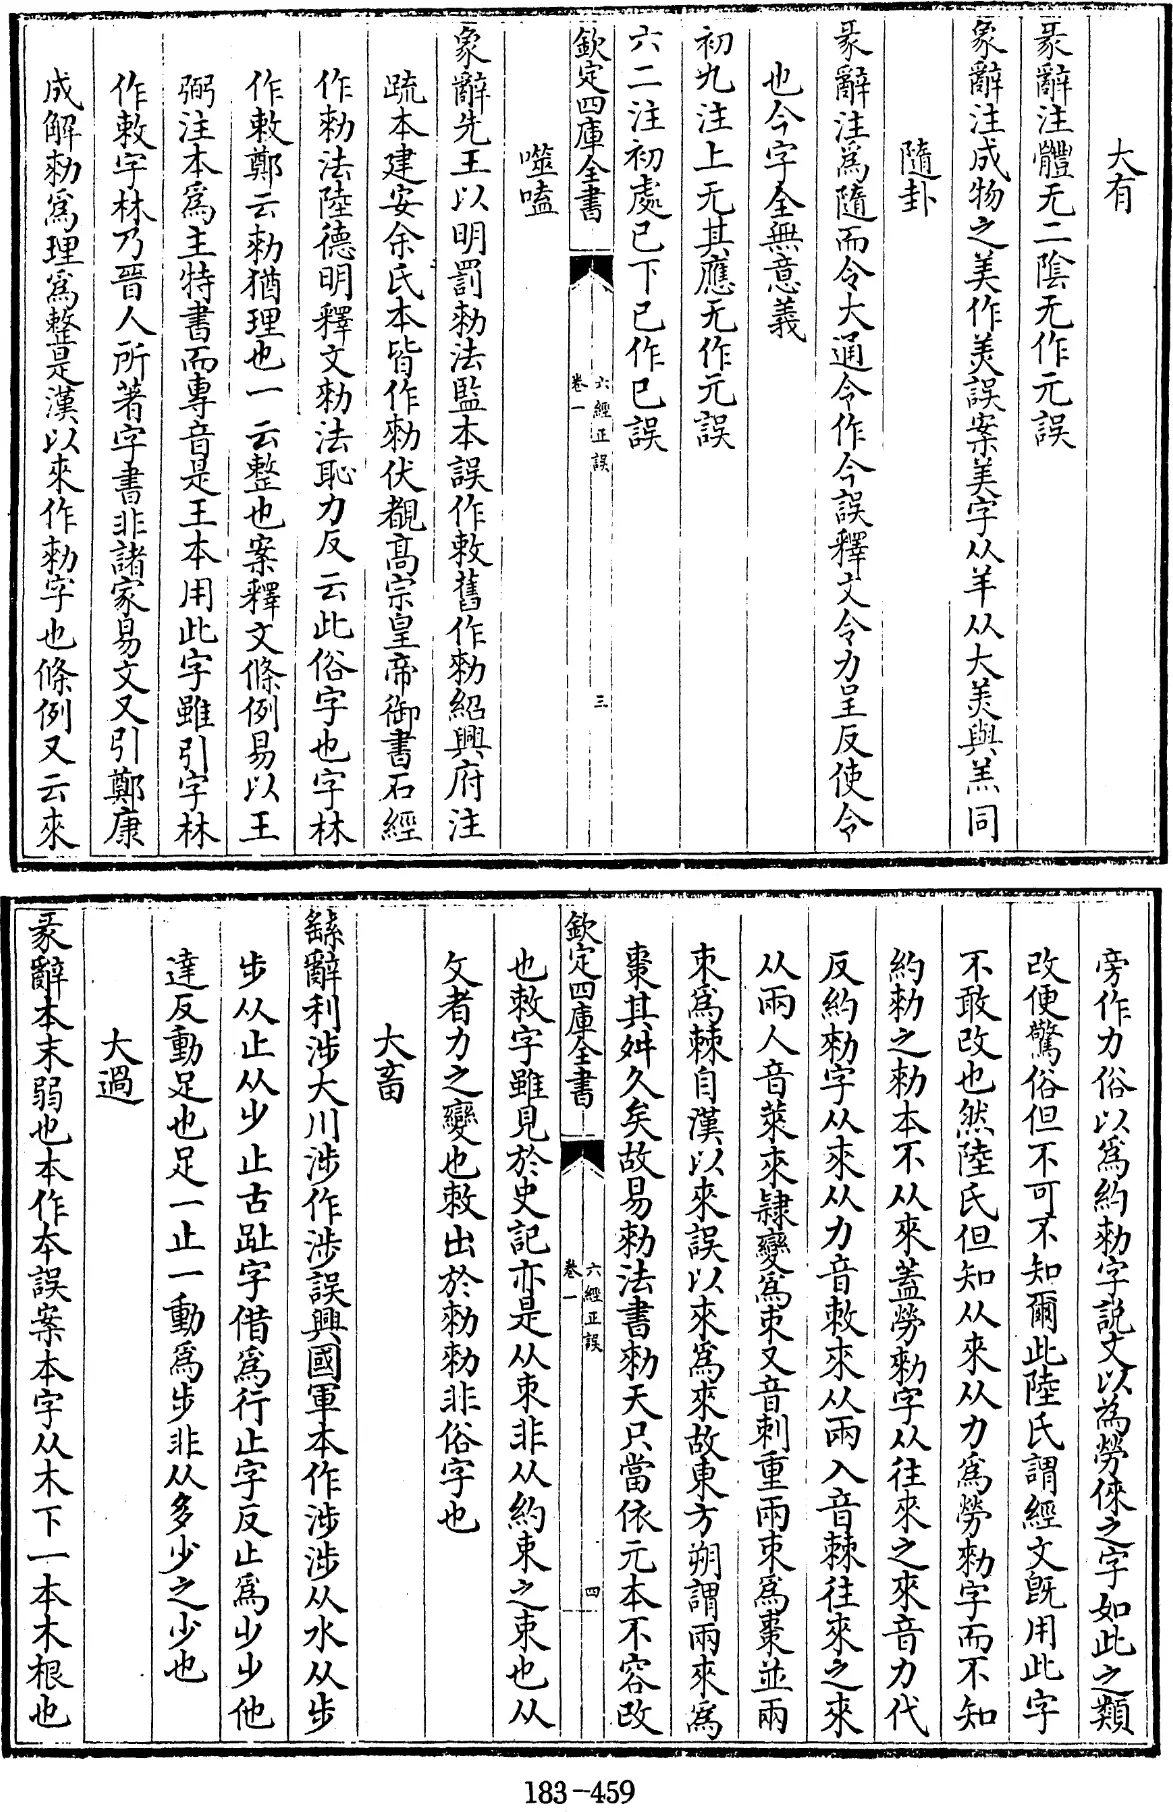 大有
彖辭注體无二陰无作元誤
象辭注成物之美作羙誤案美字从羊从大羙與羔同
隨卦
彖辭注爲隨而令大通令作今誤釋文令力呈反使令
也今字全無意義
初九注上无其應无作元誤
六二注初處已下已作巳誤
欽定四庫全書
六經正誤
卷一
三
噬嗑
象辭先王以明罰勑法監本誤作敕舊作勑紹興府注
疏本建安余氏本皆作勑伏覩高宗皇帝御書石經
作勑法陸德明釋文勑法恥力反云此俗字也字林
作敕鄭云勑猶理也一云整也案釋文條例易以王
弼注本爲主特書而專音是王本用此字雖引字林
作敕字林乃晉人所著字書非諸家易文又引鄭康
成解勑爲理爲整是漢以來作勑字也條例又云來
旁作力俗以爲約勑字説文以為勞倈之字如此之類
改便驚俗但不可不知爾此陸氏謂經文旣用此字
不敢改也然陸氏但知从來从力爲勞勑字而不知
約勑之勑本不从來蓋勞勑字从往來之來音力代
反約勑字从來从力音敕來从兩入音棘往來之來
从兩人音萊來隷變爲朿又音刺重兩朿爲棗並兩
朿爲棘自漢以來誤以來爲來故東方朔謂兩來爲
棗其舛久矣故易勑法書勑天只當依元本不容改
欽定四庫全書
六經正誤
卷一
四
也敕字雖見於史記亦是从朿非从約束之束也从
攵者力之變也敕出於勑勑非俗字也
大畜
繇辭利涉大川涉作渉誤興國軍本作涉涉从水从步
步从止从少止古趾字借爲行止字反止爲少少他
達反動足也足一止一動爲步非从多少之少也
大過
彖辭本末弱也本作夲誤案本字从木下一本木根也
183-459